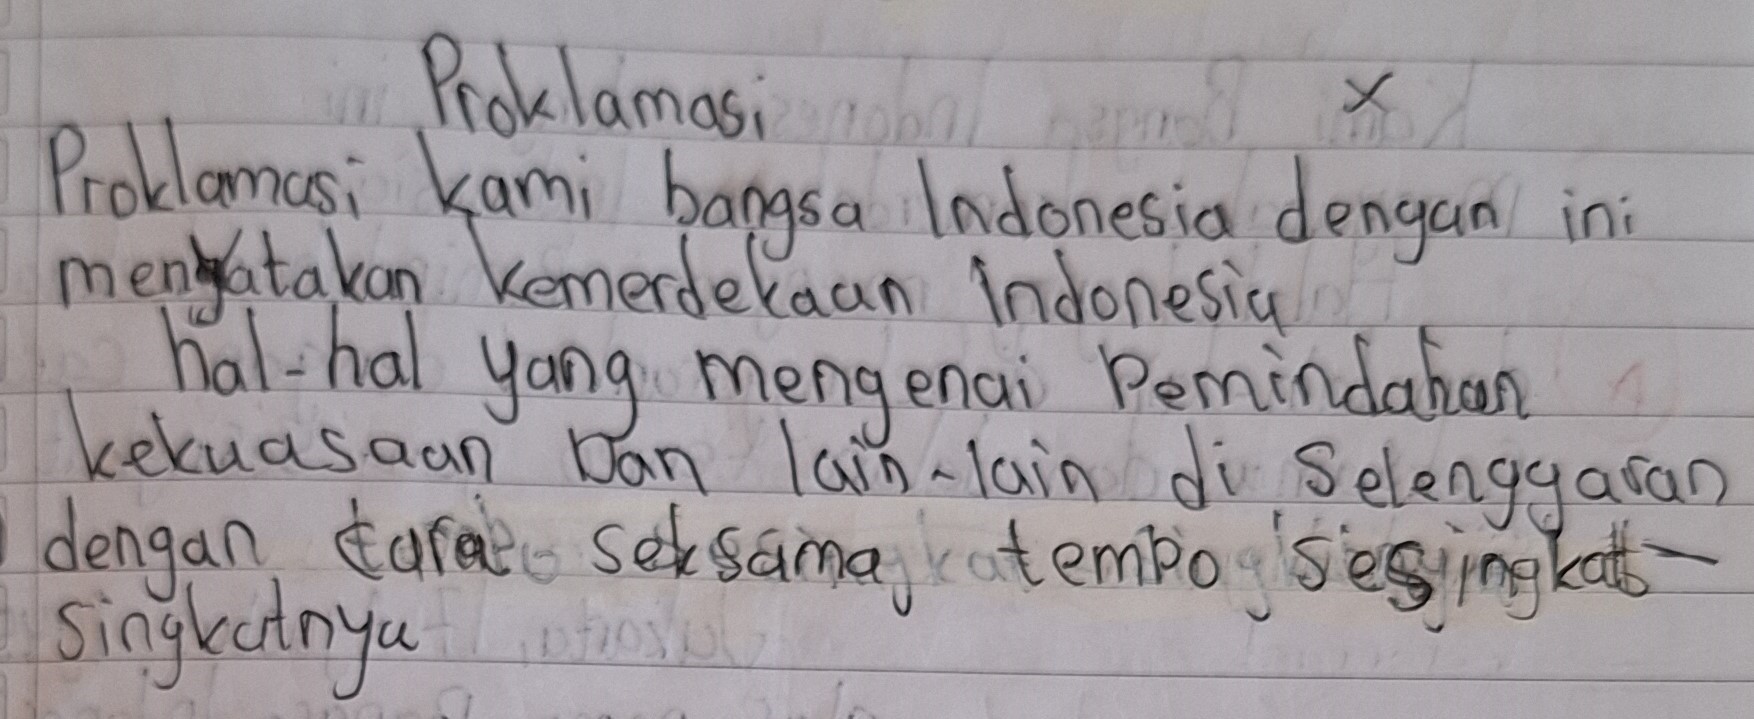 Proklamasi x
Proklamasi kami bangsa Indonesia dengan ini
menyatakan kemerdekaan indonesia
hal-hal yang mengenai pemindahan
kekuasaan Dan lain-lain di selenggaran
dengan tarat seksama tempo sesingkat-
singkatnya